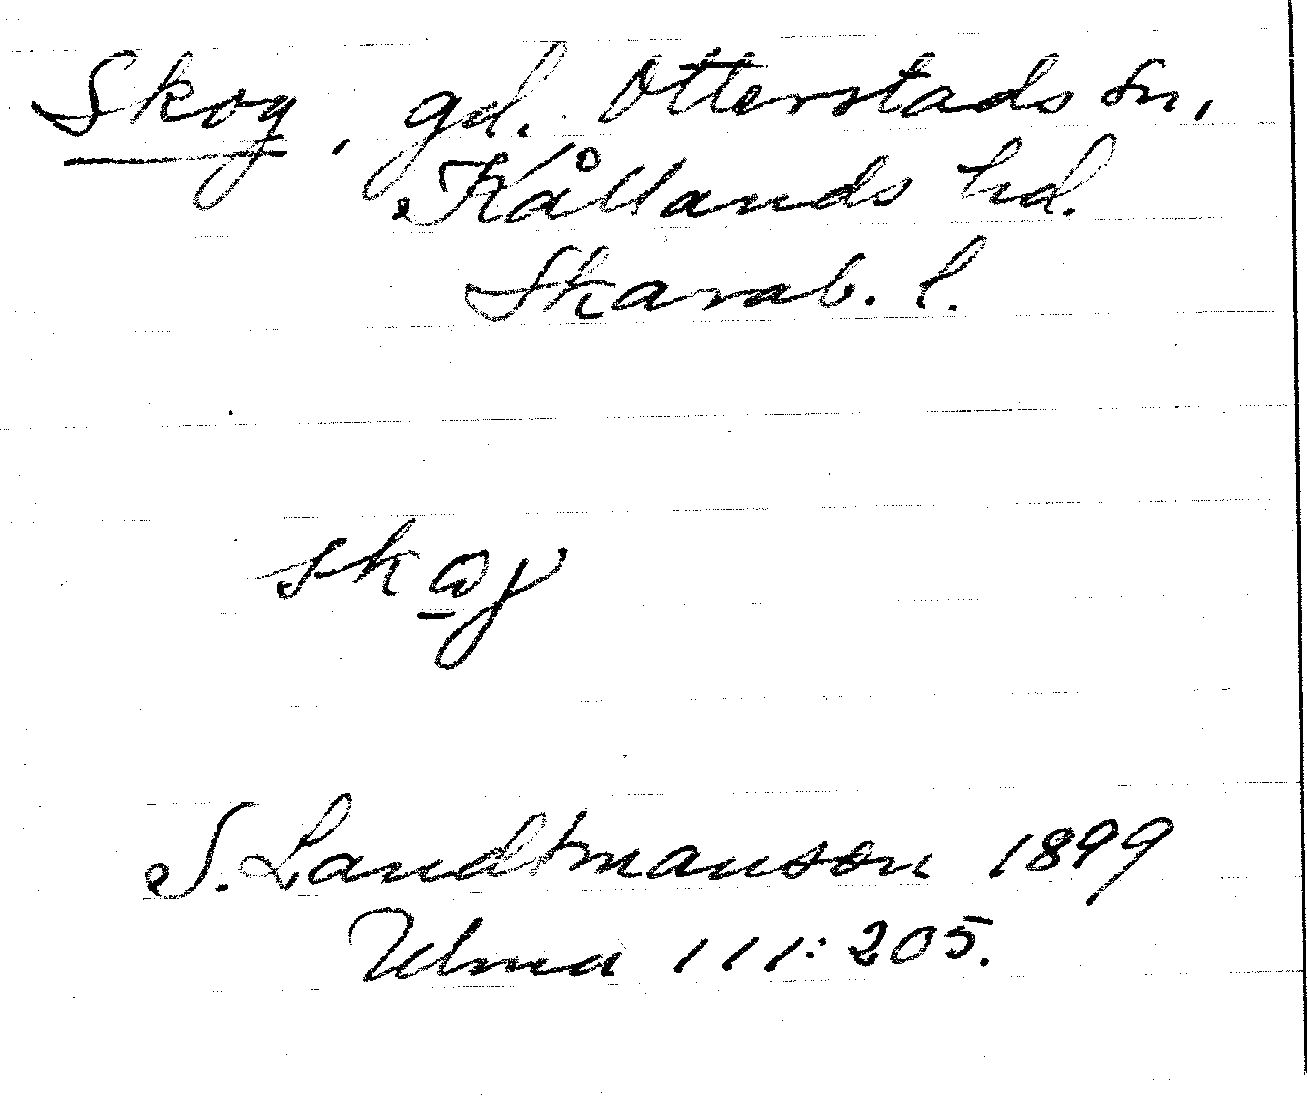 Skog, gd. Otterstads sn,
Kållands hd.
Skarab. l.
skog
S. Landtmanson 1899
Ulma 111:205.